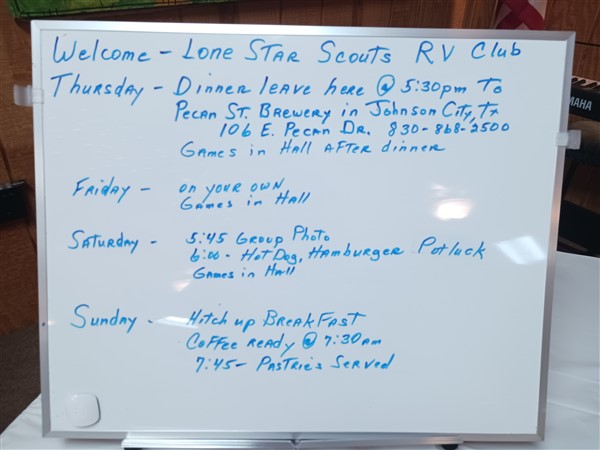 Welcome - Lone Star Scouts RV Club
Thursday - Dinner leave here @ 5:30pm To
Pecan St. Brewery in Johnson City, Tx
106 E. Pecan Dr. 830-868-2500
Games in Hall After dinner
Friday - on your own
Games in Hall
Saturday - 5:45 Group Photo
6:00 - Hot Dog, Hamburger Potluck
Games in Hall
Sunday - Hitch up Breakfast
Coffee ready @ 7:30am
7:45 - Pastries Served
YAMAHA